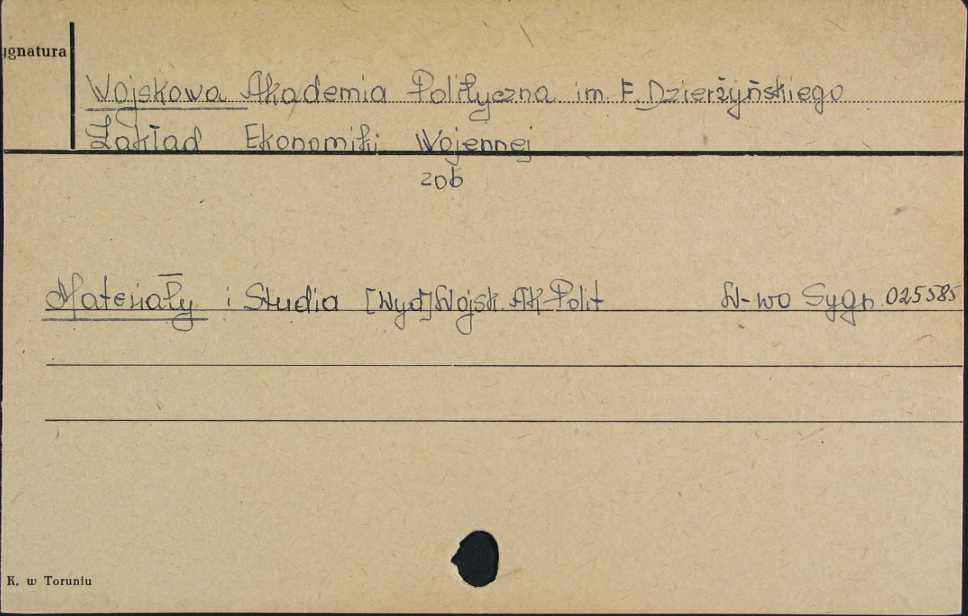 ygnatura
Wojskowa Akademia Polityczna im. F. Dzierżyńskiego
Zakład Ekonomiki Wojennej
zob
Materiały i Studia [Wyd] Wojsk. Ak. Polit W-wo Sygn. 025585
K. w Toruniu